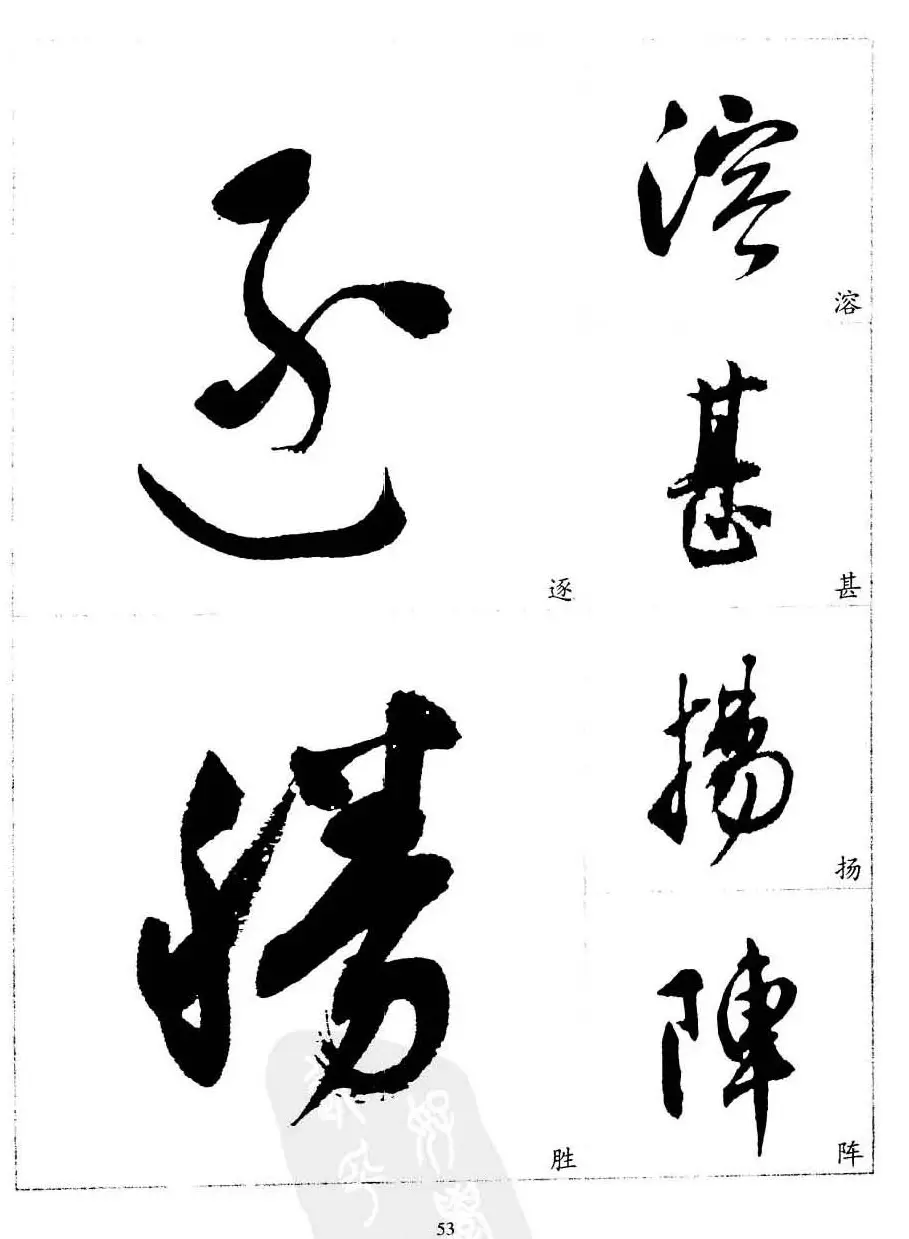 逐
逐
勝
胜
溶
溶
甚
甚
揚
扬
陣
阵
53